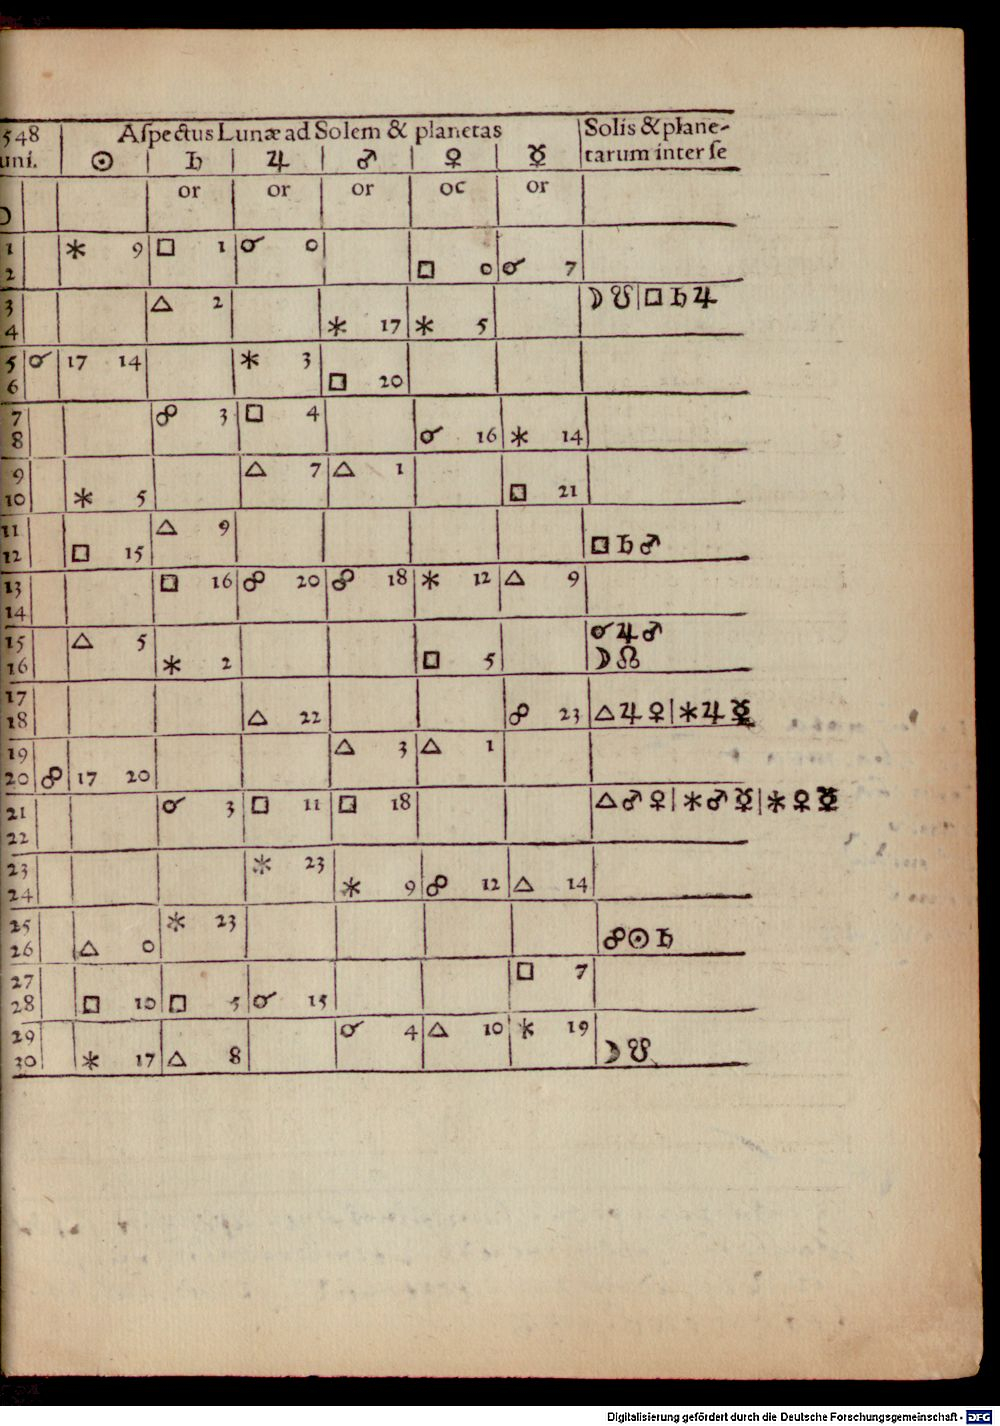 548 | Aſpectus Lunæ ad Solem & planetas | Solis & plane-
uni. | ☉ | ♄ | ♃ | ♂ | ♀ | ☿ | tarum inter ſe
or | or | or | oc | or
1 | ✶ 9 | □ 1 | ☌ 0
2 | □ 0 | ☌ 7
3 | △ 2 | ☽ ☋ | □ ♄ ♃
4 | ✶ 17 | ✶ 5
5 | ☌ 17 14 | ✶ 3
6 | □ 20
7 | ☍ 3 | □ 4
8 | ☌ 16 | ✶ 14
9 | △ 7 | △ 1
10 | ✶ 5 | □ 21
11 | △ 9
12 | □ 15 | □ ♄ ♂
13 | □ 16 | ☍ 20 | ☍ 18 | ✶ 12 | △ 9
14
15 | △ 5 | ☌ ♃ ♂
16 | ✶ 2 | □ 5 | ☽ ☊
17
18 | △ 22 | ☍ 23 | △ ♃ ♀ | ✶ ♃ ☿
19 | △ 3 | △ 1
20 | ☍ 17 20
21 | ☌ 3 | □ 11 | □ 18 | △ ♂ ♀ | ✶ ♂ ☿ | ✶ ♀ ☿
22
23 | ✶ 23
24 | ✶ 9 | ☍ 12 | △ 14
25 | ✶ 23
26 | △ 0 | ☍ ☉ ♄
27 | □ 7
28 | □ 10 | □ 5 | ☌ 15
29 | ☌ 4 | △ 10 | ✶ 19
30 | ✶ 17 | △ 8 | ☽ ☋
Digitalisierung gefördert durch die Deutsche Forschungsgemeinschaft - DFG